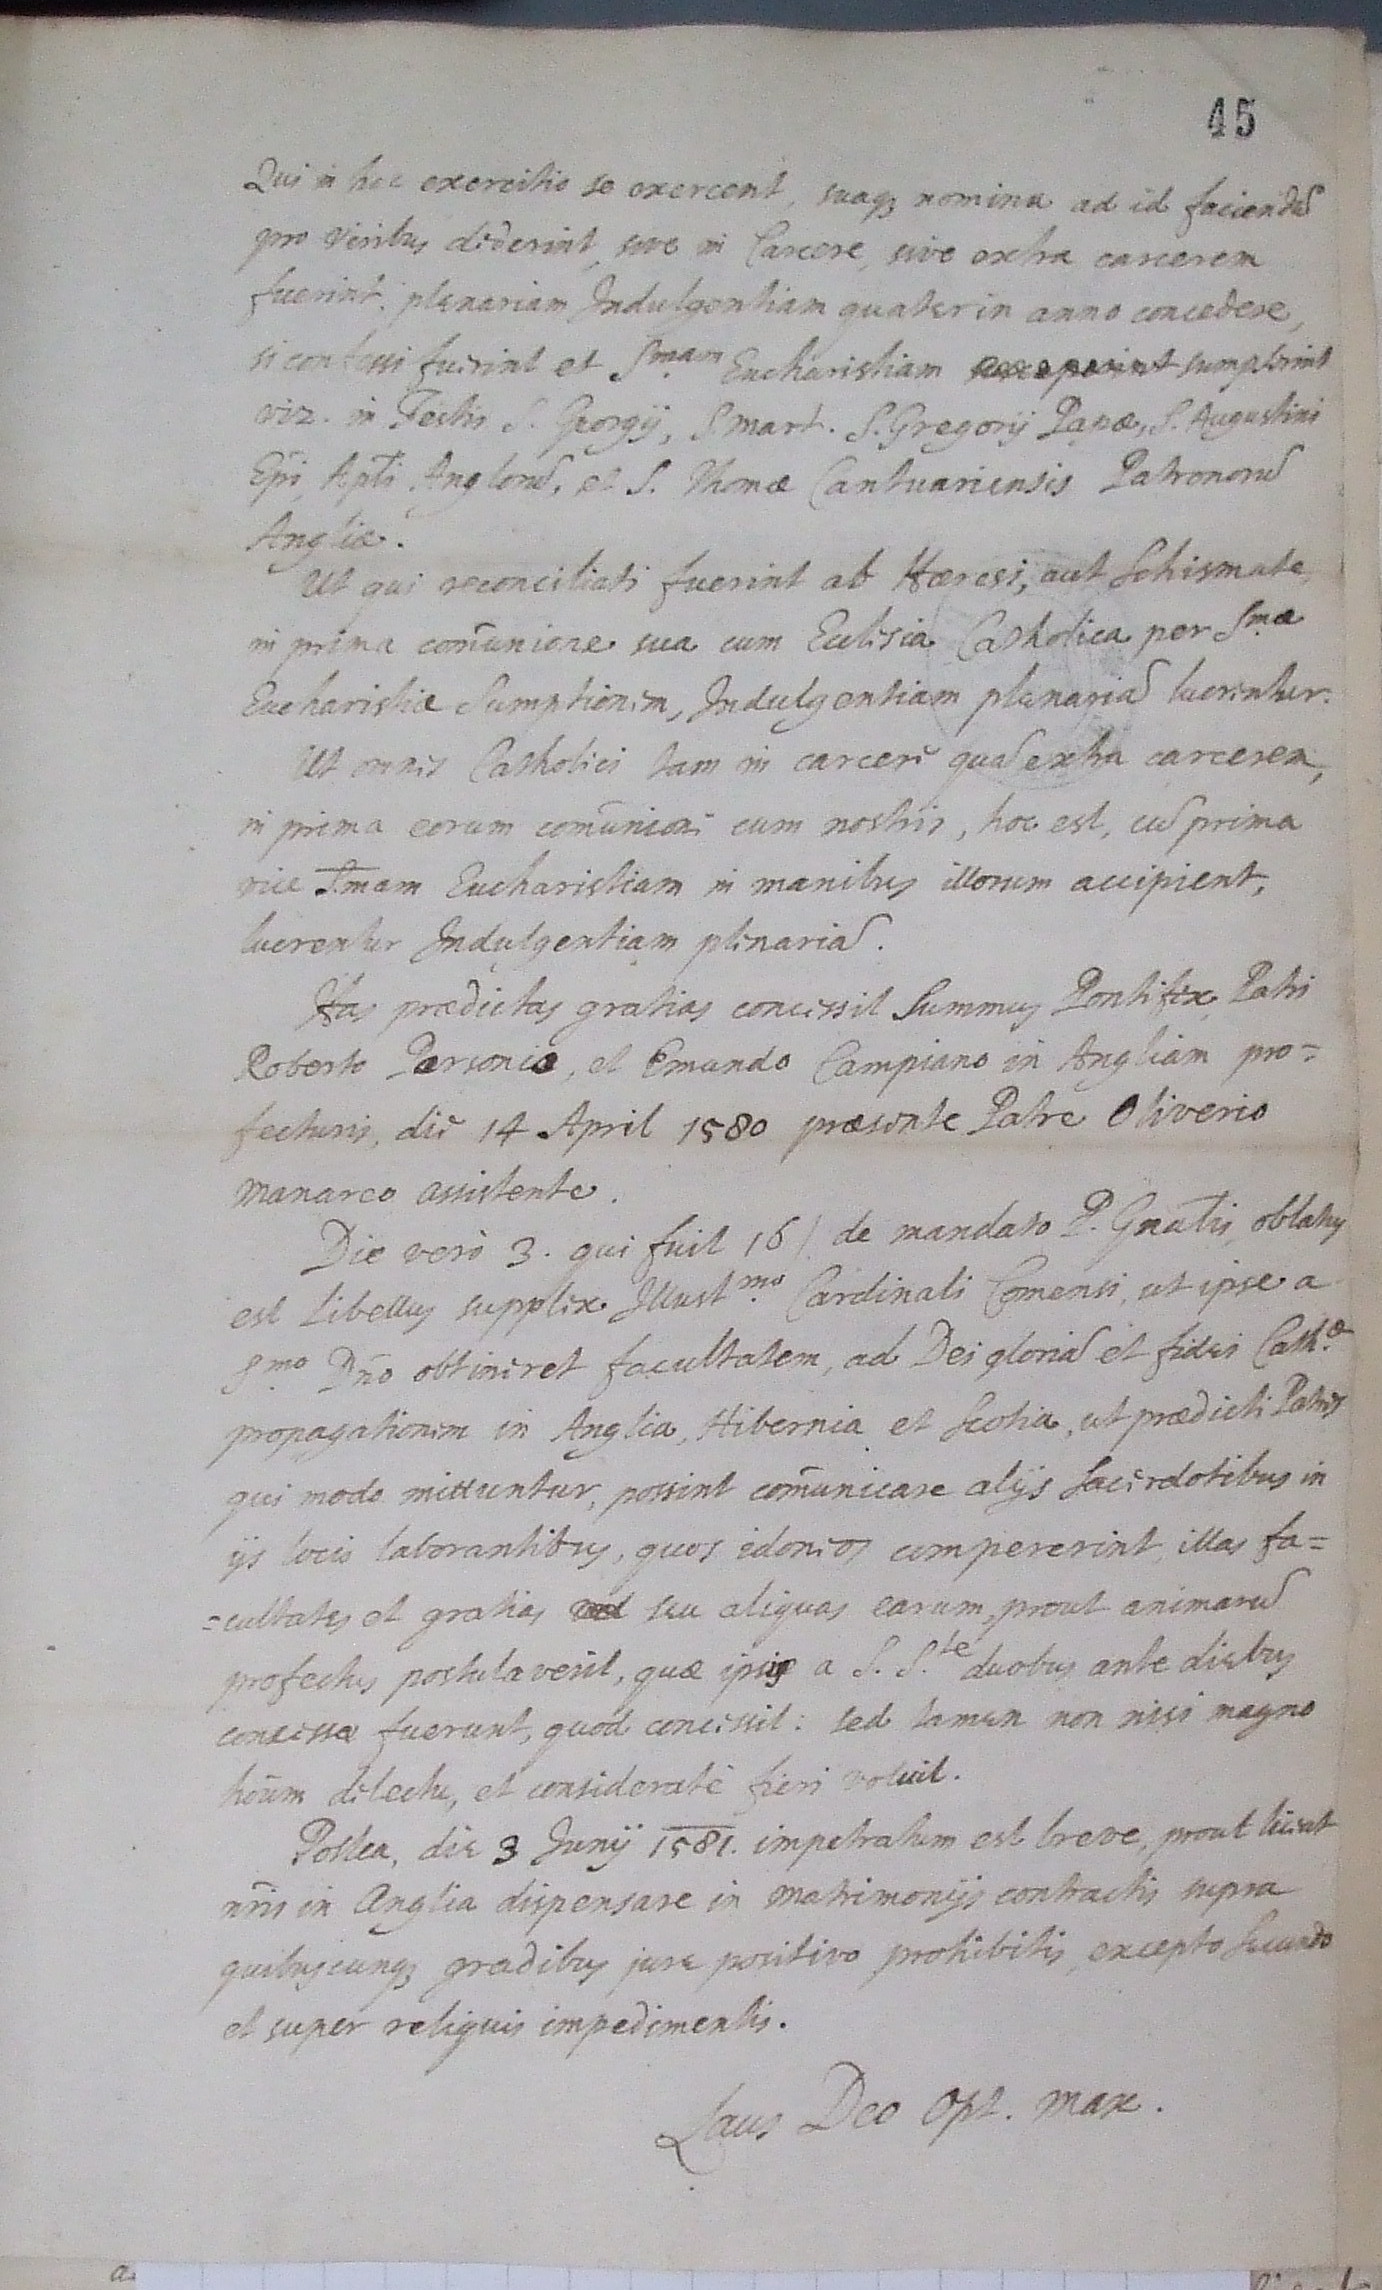 45
Qui in hoc exercitio se exercent, suaq; nomina ad id faciendū
pro viribus dederint, sive in Carcere, sive extra carcerem
fuerint, plenariam Indulgentiam quater in anno concedere,
si confessi fuerint et Smam Eucharistiam susceperint sumpserint
viz. in Festis S. Georgij, S mart. S. Gregorij Papæ, S. Augustini
Epi, Apli Anglorū, et S. Thomæ Cantuariensis Patronorū
Angliæ.
Ut qui reconciliati fuerint ab Hæresi, aut Schismate,
in prima com̄unione sua cum Eclesia Catholica per Smæ
Eucharistiæ Sumptionem, Indulgentiam plenariā lucrentur.
Ut omnes Catholici tam in carcere quā extra carcerem,
in prima eorum com̄unione cum nostris, hoc est, cū prima
vice Smam Eucharistiam in manibus illorum accipient,
lucrentur Indulgentiam plenariā.
Has prædictas gratias concessit Summus Pontifex Patri
Roberto Personio, et Emundo Campiano in Angliam pro=
fecturis, die 14 April 1580 præsente Patre Oliverio
Manareo assistente.
Die verò 3. qui fuit 16 / de mandato P. Gnalis, oblatus
est Libellus supplex Illustmo Cardinali Comensi, ut ipse a
Smo Dn̄o obtineret facultatem, ad Dei gloriā et fidei Cath.æ
propagationem in Anglia, Hibernia et Scotia, ut prædicti Patres
qui modo mittuntur, possint com̄unicare alijs Sacerdotibus in
ijs locis laborantibus, quos idoneos compererint, illas fa=
=cultates et gratias vel seu aliquas earum, prout animarū
profectus postulaverit, quæ ipsis a S. S.te duobus ante diebus
concessæ fuerunt, quod concessit: sed tamen non nisi magno
hoūm delectu, et consideratè fieri voluit.
Postea, die 3 Junij 1581. impetratum est breve, prout liceat
nr̄is in Anglia dispensare in Matrimonijs contractis supra
quibuscunq; gradibus jure positivo prohibitis, excepto Secundo
et super reliquis impedimentis.
Laus Deo Opt. Max.